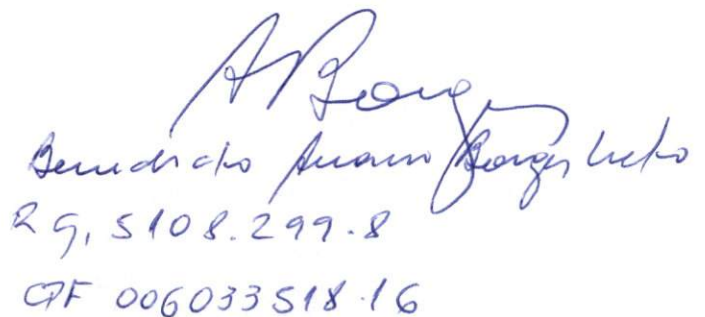 ABorges
Benedicto Amaro Borges Neto
RG, 5108.299.8
CPF 006033518.16